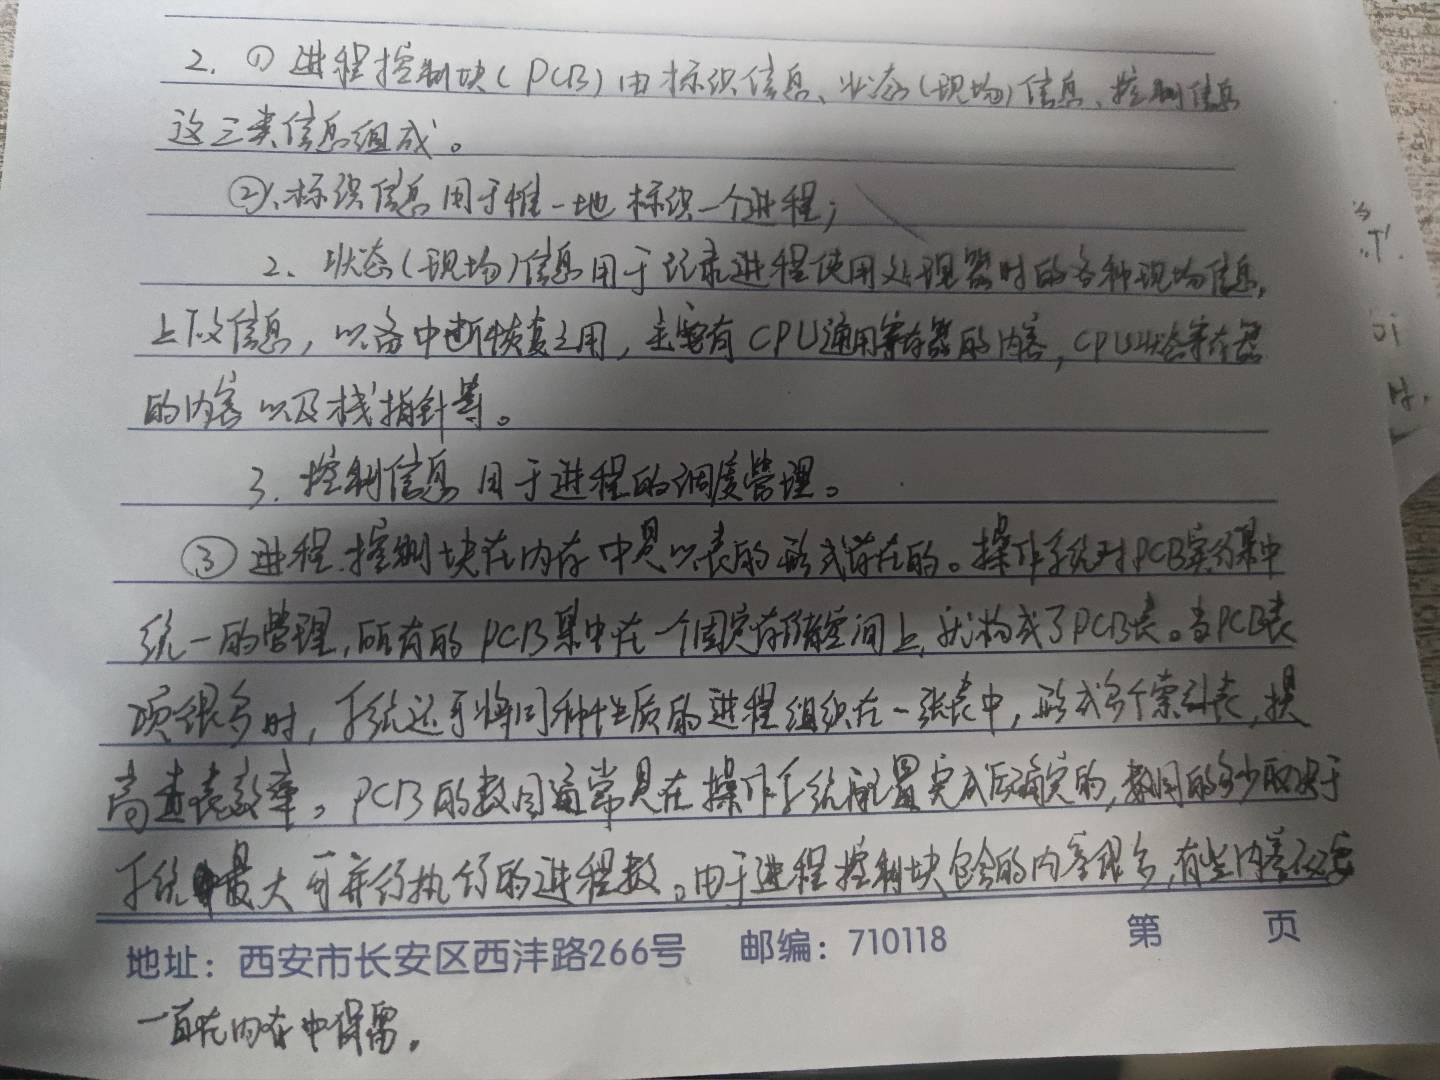 2. ① 进程控制块(PCB)由标识信息、状态(现场)信息、控制信息
这三类信息组成。
②1、标识信息用于惟一地标识一个进程;
2、状态(现场)信息用于记录进程使用处理器时的各种现场信息,
上下文信息,以备中断恢复之用,主要有CPU通用寄存器的内容,CPU状态寄存器
的内容以及栈指针等。
3. 控制信息用于进程的调度管理。
③ 进程控制块在内存中是以表的形式存在的。操作系统对PCB实行集中
统一的管理,所有的PCB集中在一个固定存储空间上,就构成了PCB表。当PCB表
项很多时,系统还可将同种性质的进程组织在一张表中,形成多个索引表,提
高查表效率。PCB的数目通常是在操作系统配置完成后确定的,数目的多少取决于
系统中最大可并行执行的进程数。由于进程控制块包含的内容很多,有些内容不必要
地址:西安市长安区西沣路266号 邮编:710118 第 页
一直在内存中保留。